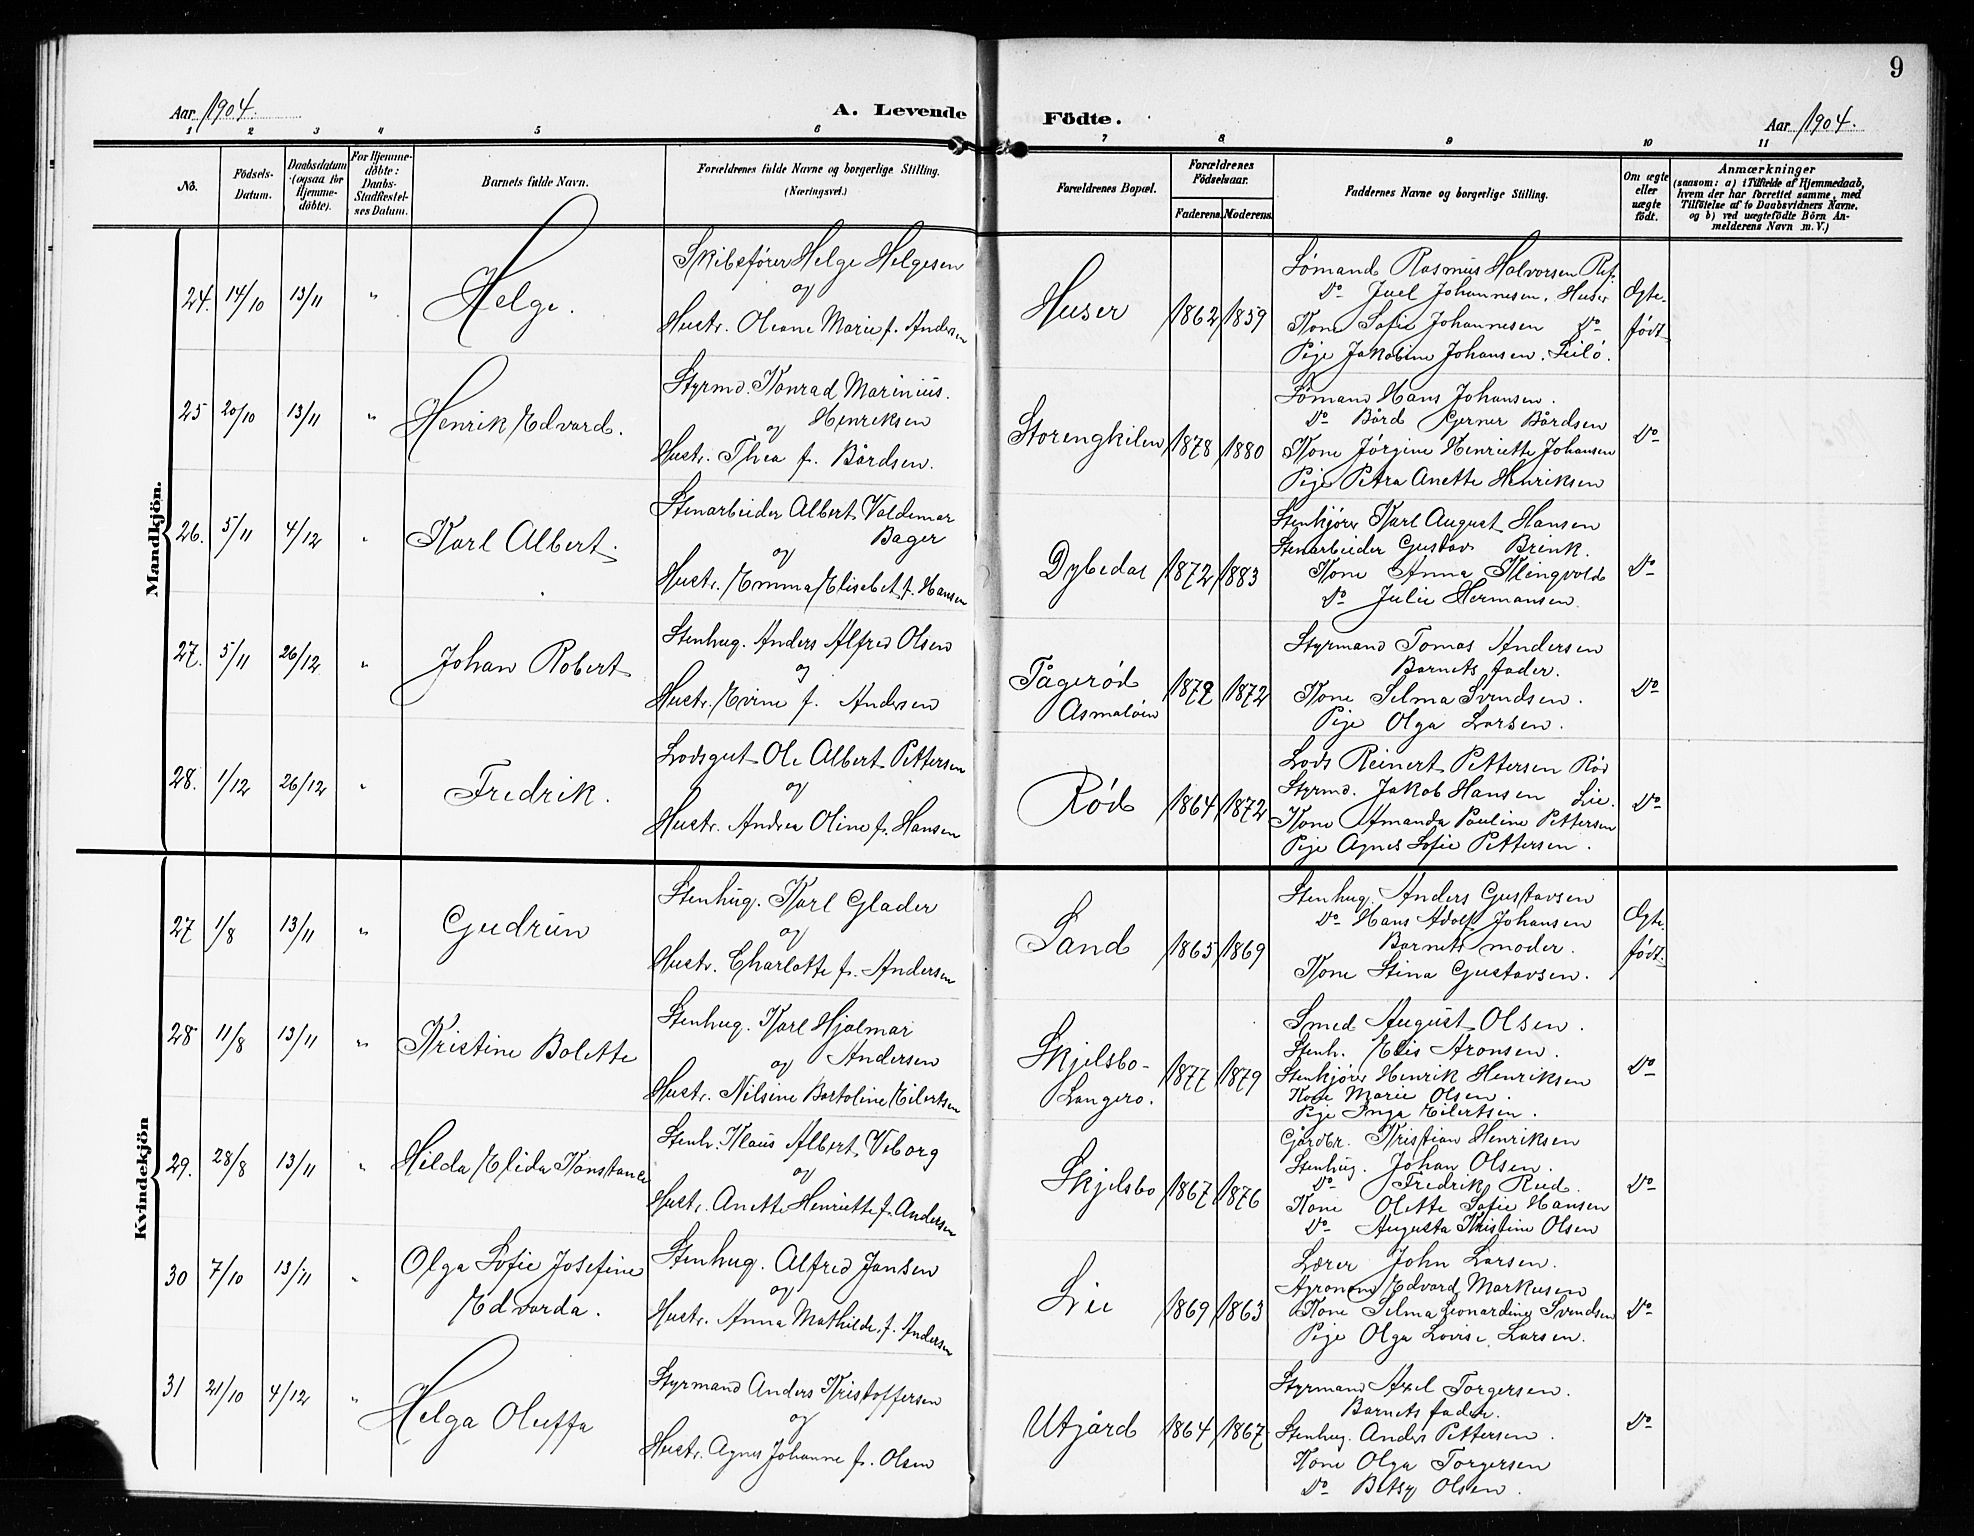 9
Aar 1904.
A. Levende Födte.
Aar 1904.
1 2 3 4 5 6 7 8 9 10 11
No.
Födsels-Datum.
Daabsdatum (ogsaa for Hjemme-döbte).
For Hjemme-döbte: Daabs-Stadfæstel-ses Datum.
Barnets fulde Navn.
Forældrenes fulde Navne og borgerlige Stilling.
(Næringsvei.)
Forældrenes Bopæl.
Forældrenes Födselsaar.
Faderens. Moderens.
Faddernes Navne og borgerlige Stilling.
Om ægte eller uægte födt.
Anmærkninger
(saasom: a) i Tilfælde af Hjemmedaab,
hvem der har forrettet samme, med
Tilföielse af to Daabsvidners Navne.
og b) ved uægtefödte Börn An-
melderens Navn m. V.)
Mandkjön.
24. 14/10 13/11 "
Helge.
Skibsfører Helge Helgesen
og
Hustr. Oleane Marie f. Andersen
Huser
1862 1859
Sømand Rasmus Halvorsen Ref.
Do Juel Johannesen. Huser
Kone Sofie Johannesen Do
Pige Jakobine Johansen.
Ægte-
født
25 20/10 13/11 "
Henrik Edvard.
Styrmd. Konrad Marinius.
Henriksen
og
Hustr. Thea f. Bårdsen.
Storengkilen
1878 1880
Sømand Hans Johansen.
Do Bård Gerner Bårdsen
Kone Jørgine Henriette Johansen
Pige Petra Anette Henriksen
Do
26. 5/11 4/12 "
Karl Albert.
Stenarbeider Albert Valdemar
Bager
og
Hustr. Emma Elisebet f. Hansen
Dybedal
1872 1883
Stenkjører Karl August Hansen
Stenarbeider Gustav Brink.
Kone Anna Klingvold
Do Julie Hermansen.
Do
27. 5/11 26/12 "
Johan Robert
Stenhug. Anders Alfred Olsen
og
Hustr. Evine f. Andersen
Tågerød
Asmaløen
1872 1872
Styrmand Tomas Andersen
Barnets fader.
Kone Selma Svendsen.
Pige Olga Larsen.
Do
28. 1/12 26/12 "
Fredrik.
Lodsgut Ole Albert Pettersen
og
Hustr. Andrea Oline f. Hansen
Rød
1864 1872
Lods Reinert Pettersen Rød
Styrmd. Jakob Hansen Lie.
Kone Amanda Pauline Pettersen
Pige Agnes Sofie Pettersen.
Do
Kvindekjön
27 1/8 13/11 "
Gudrun
Stenhug. Karl Glader
og
Hustr. Charlotte f. Andersen
Sand
1865 1869
Stenhug. Anders Gustavsen
Do Hans Adolf Johansen
Barnets moder.
Kone Stina Gustavsen.
Ægte-
født.
28 11/8 13/11 "
Kristine Bolette
Stenhug. Karl Hjalmar
og Andersen
Hustr. Nilsine Bartoline Eilertsen
Skjelsbo-
Langero.
1877 1879
Smed August Olsen.
Stenh. Elis Aronsen.
Stenkjører Henrik Henriksen
Kone Marie Olsen.
Pige Inga Eilertsen.
Do
29. 28/8 13/11 "
Hilda Elida Konstance
Stenh. Klaus Albert Viborg
og
Hustr. Anette Henriette f. Andersen
Skjelsbo
1867 1876
Gårdbr. Kristian Henriksen
Stenhug. Johan Olsen.
Do Fredrik Rud.
Kone Olette Sofie Hansen
Do Augusta Kristine Olsen
Do
30 7/10 13/11 "
Olga Sofie Josefine
Edvarda.
Stenhug. Alfred Jansen
og
Hustr. Anna Mathilde f. Andersen
Lie
1869 1863
Lærer John Larsen.
Agronom Edvard Markusen
Kone Selma Leonardine Svendsen
Pige Olga Lovise Larsen.
Do
31 21/10 4/12 "
Helga Oluffa
Styrmand Anders Kristoffersen
og
Hustr. Agnes Johanne f. Olsen
Utgård
1864 1867
Styrmand Axel Torgersen.
Barnets fader.
Stenhug. Anders Pettersen.
Kone Olga Torgersen
Do Betsy Olsen.
Do